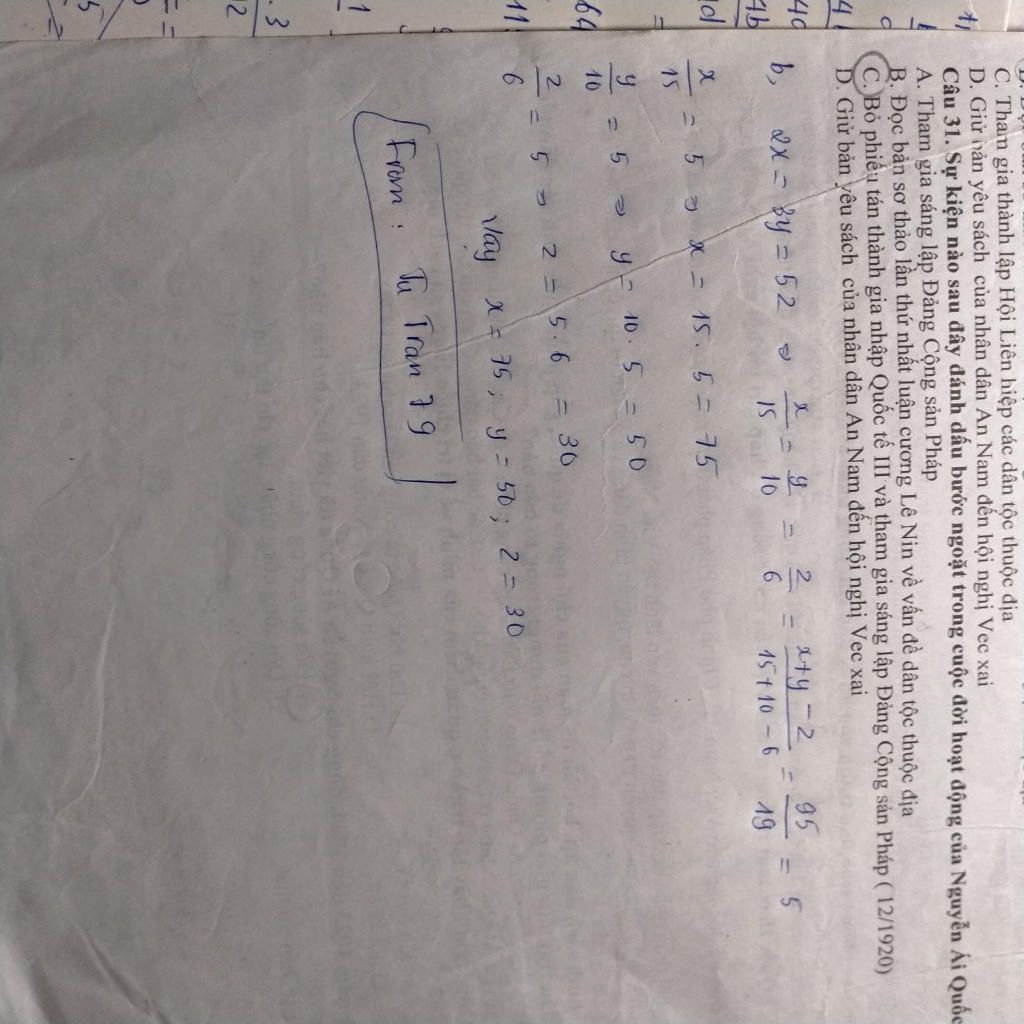 C. Tham gia thành lập Hội Liên hiệp các dân tộc thuộc địa
D. Giữ bản yêu sách của nhân dân An Nam đến hội nghị Vec xai
Câu 31. Sự kiện nào sau đây đánh dấu bước ngoặt trong cuộc đời hoạt động của Nguyễn Ái Quốc
A. Tham gia sáng lập Đảng Cộng sản Pháp
B. Đọc bản sơ thảo lần thứ nhất luận cương Lê Nin về vấn đề dân tộc thuộc địa
C. Bỏ phiếu tán thành gia nhập Quốc tế III và tham gia sáng lập Đảng Cộng sản Pháp ( 12/1920)
D. Giữ bản yêu sách của nhân dân An Nam đến hội nghị Vec xai
b, 2x = 3y = 5z ⇒ x/15 = y/10 = z/6 = x+y-z/15+10-6 = 95/19 = 5
x/15 = 5 ⇒ x = 15. 5 = 75
y/10 = 5 ⇒ y = 10. 5 = 50
z/6 = 5 ⇒ z = 5.6 = 30
Vậy x = 75; y = 50; z = 30
From: Tu Tran 79